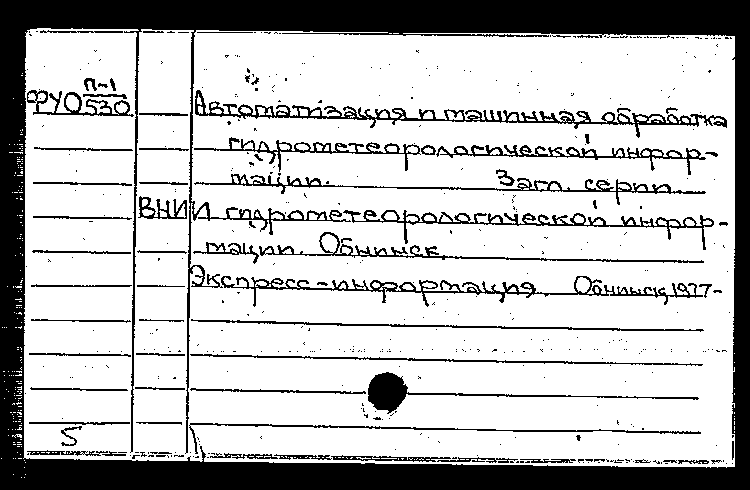 П-1
ФУО 530
Автоматизация и машинная обработка
гидрометеорологической инфор-
мации. Загл. серии.
ВНИИ гидрометеорологической инфор-
мации. Обнинск.
Экспресс-информация. Обнинск, 1977-
5